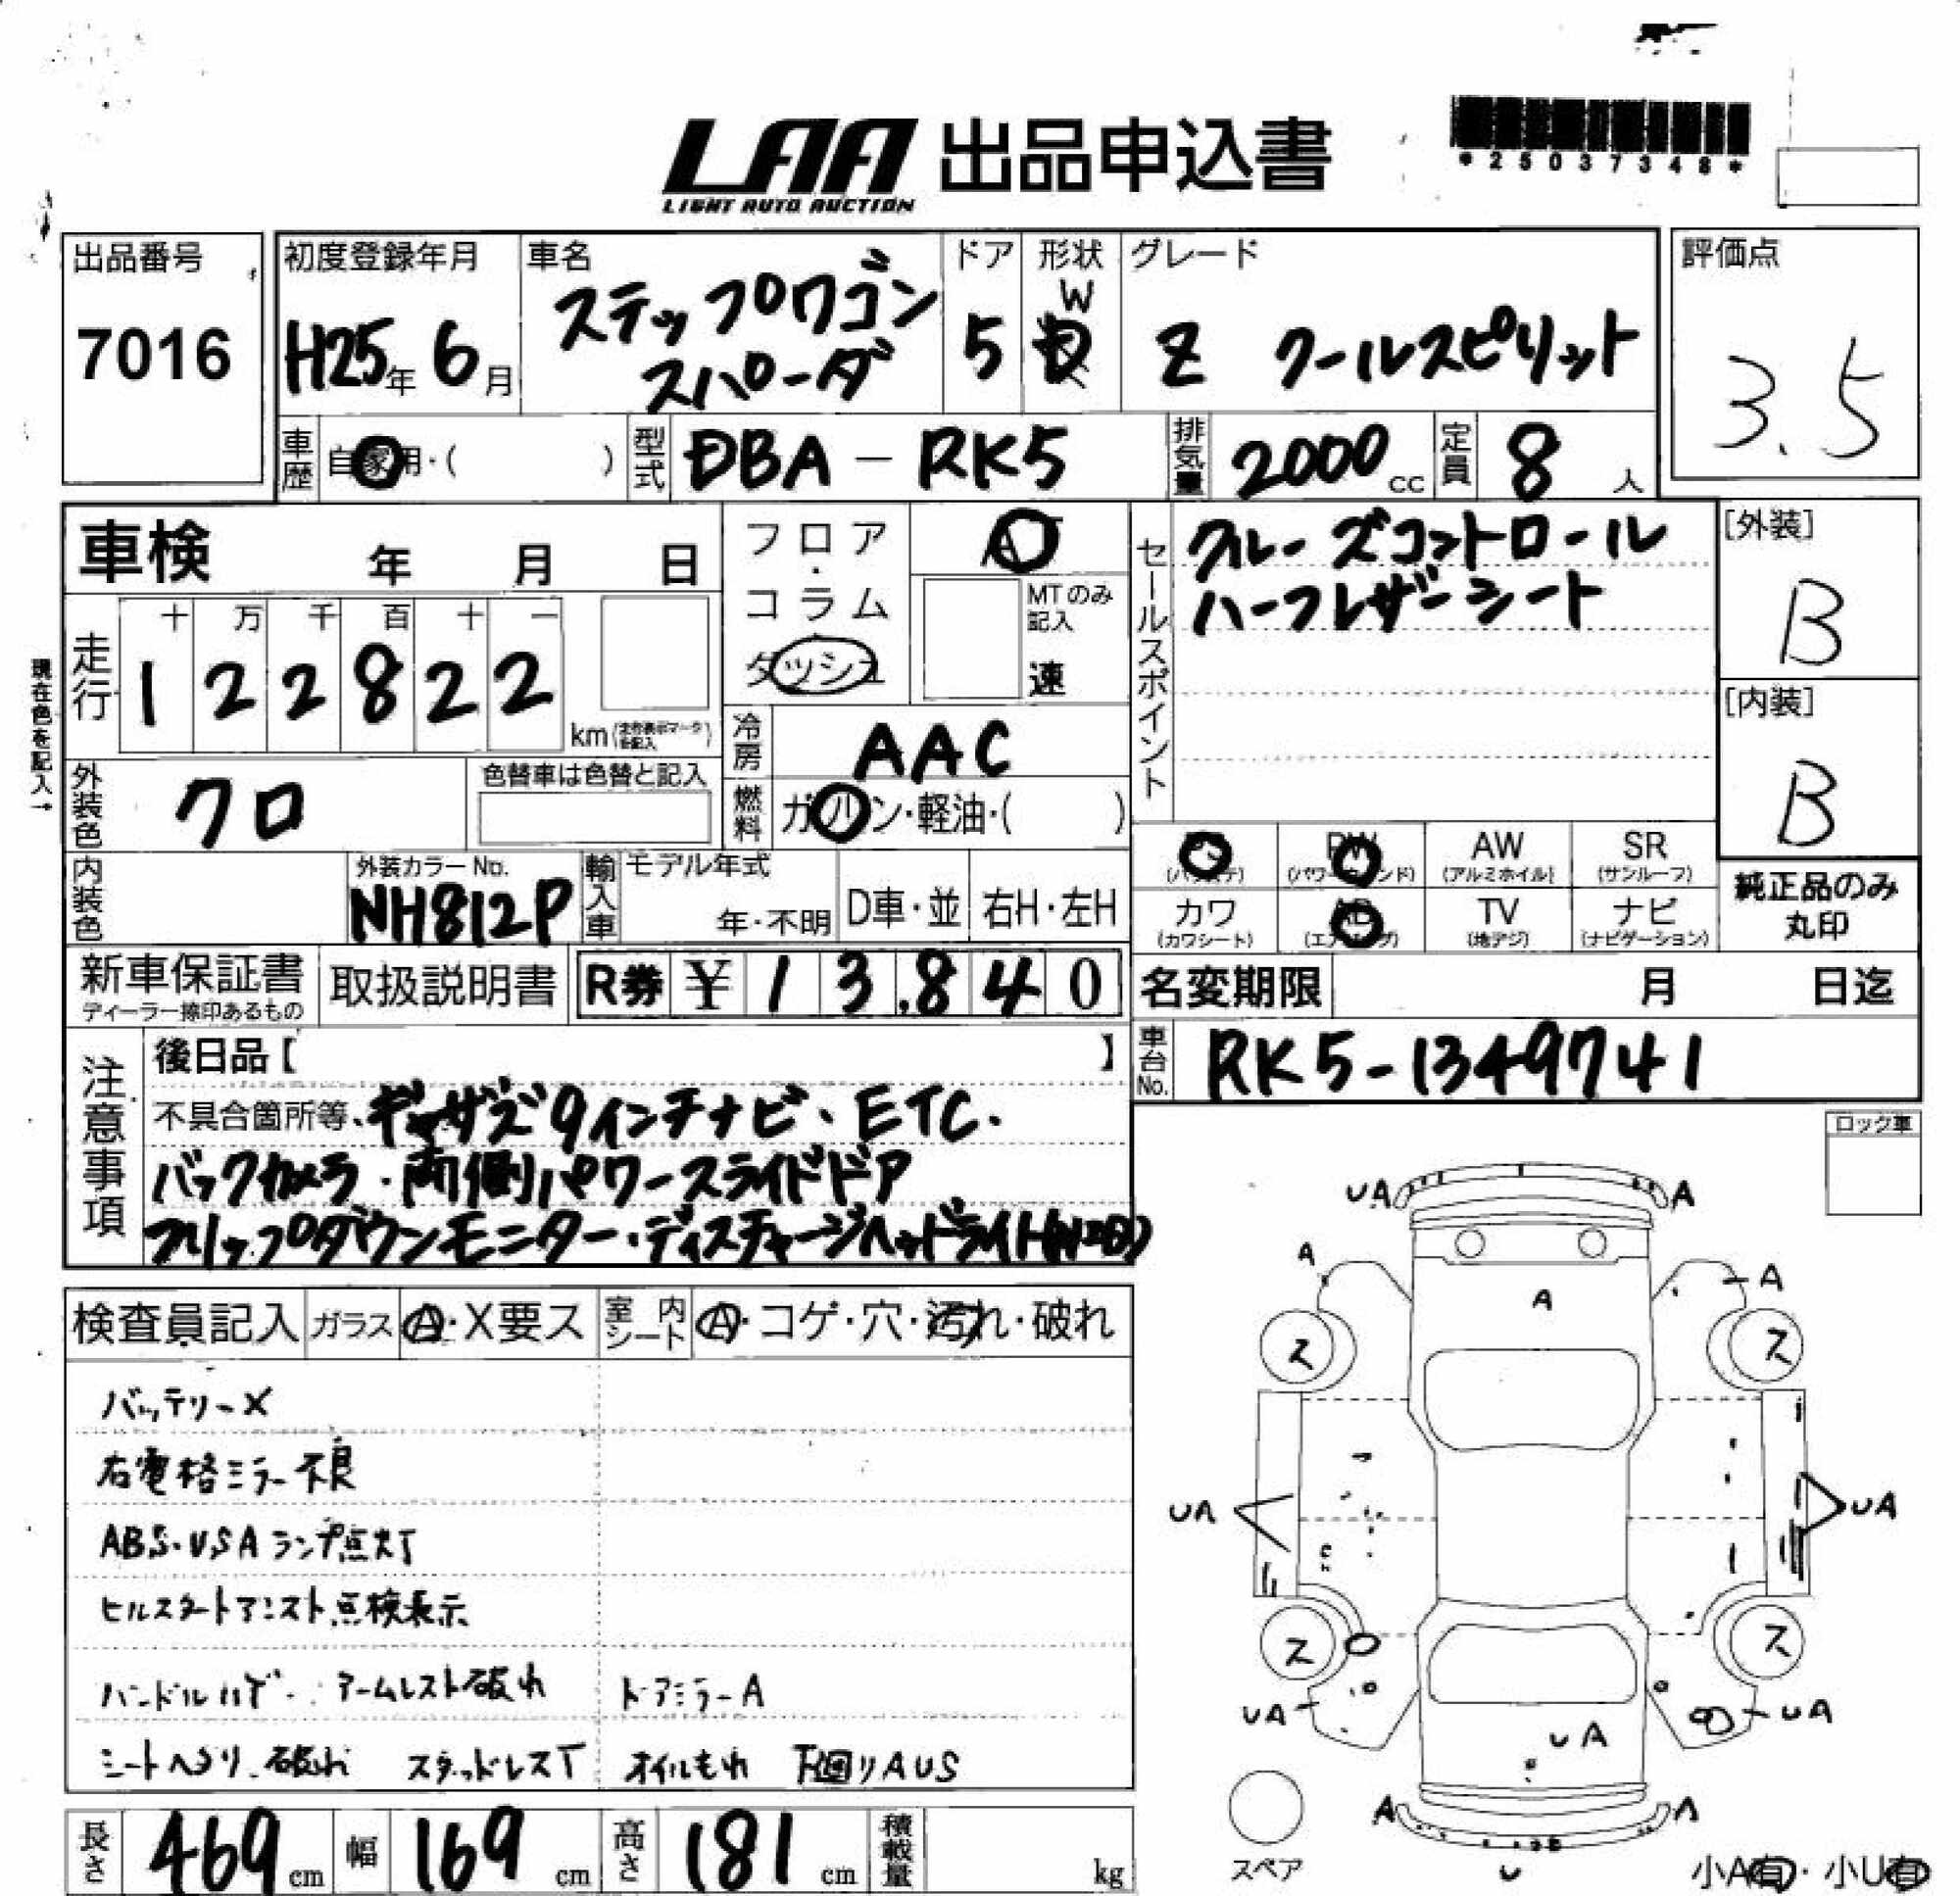 LAA 出品申込書
LIGHT AUTO AUCTION
*25037348*
出品番号
7016
初度登録年月
H25年 6月
車名
ステップワゴン
スパーダ
ドア
5
形状
W
グレード
Z クールスピリット
評価点
3.5
車歴
自家用・( )
型式
DBA-RK5
排気量
2000cc
定員
8人
車検 年 月 日
フロア・コラム
ダッシュ
AT
MTのみ記入
速
セールスポイント
クルーズコントロール
ハーフレザーシート
[外装]
B
[内装]
B
現在色を記入→
走行
十 万 千 百 十 一
1 2 2 8 2 2
km(走行表示マークを記入)
冷房
AAC
外装色
クロ
色替車は色替と記入
燃料
ガソリン・軽油・( )
PS
(パワステ)
PW
(パワーウインド)
AW
(アルミホイル)
SR
(サンルーフ)
内装色
外装カラーNo.
NH812P
輸入車
モデル年式
年・不明
D車・並
右H・左H
カワ
(カワシート)
AB
(エアバッグ)
TV
(地デジ)
ナビ
(ナビゲーション)
純正品のみ
丸印
新車保証書
ディーラー捺印あるもの
取扱説明書
R券 ¥13,840
名変期限 月 日迄
車台No.
RK5-1349741
注意事項
後日品【 】
不具合箇所等、ギャザズ9インチナビ、ETC.
バックカメラ・両側パワースライドドア
フリップダウンモニター・ディスチャージヘッドライト(HID)
ロック車
検査員記入
ガラス
A・X要ス
室内シート
A・コゲ・穴・汚れ・破れ
バッテリーX
右電格ミラー不良
ABS・VSAランプ点灯
ヒルスタートアシスト点検表示
ハンドルハゲ アームレスト破れ ドアミラーA
シートヘタリ、破れ スタッドレスT オイルもれ 下回りAUS
UA A
A A
A
ス ス
UA UA
ス ス
UA UA
UA
A A
U
スペア
小A有・小U有
長さ 469cm 幅 169cm 高さ 181cm 積載量 kg